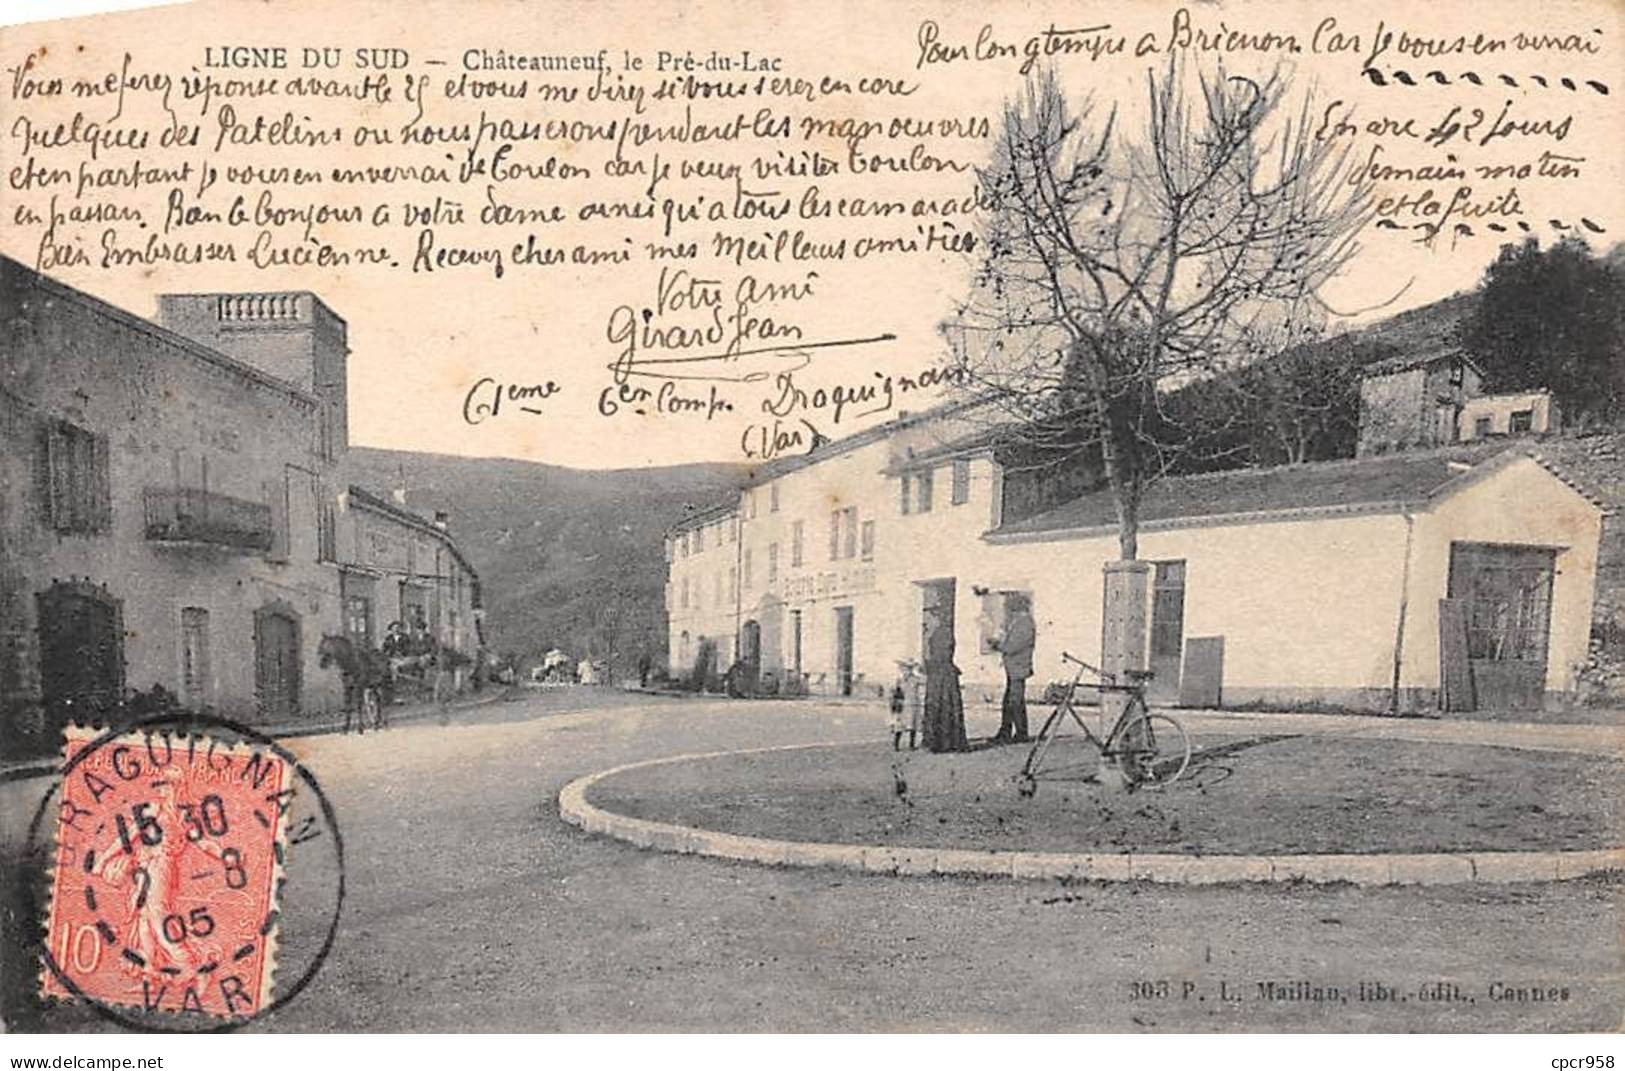 LIGNE DU SUD — Châteauneuf, le Pré-du-Lac
Pour longtemps a Brienon. Car Je vous en verrai
Vous me ferez réponse avant le 25 et vous me direz si vous serez encore
quelques des Patelins ou nous passerons pendant les manoeuvres
et en partant je vous en enverrai de Toulon car je veux visiter Toulon
en passan. Bon le bonjour a votre dame ainsi qu'a tous les camarades
Bien Embrasser Lucienne. Recevez cher ami mes Meilleurs amities
Encore 42 Jours
demain matin
et la fuite
Votre Ami
Girard Jean
61eme 6em Comp. Draguignan
(Var)
DRAGUIGNAN
15 30
2 -8
05
VAR
10
303 P. L. Maillan, libr.-édit., Cannes
cpcr958